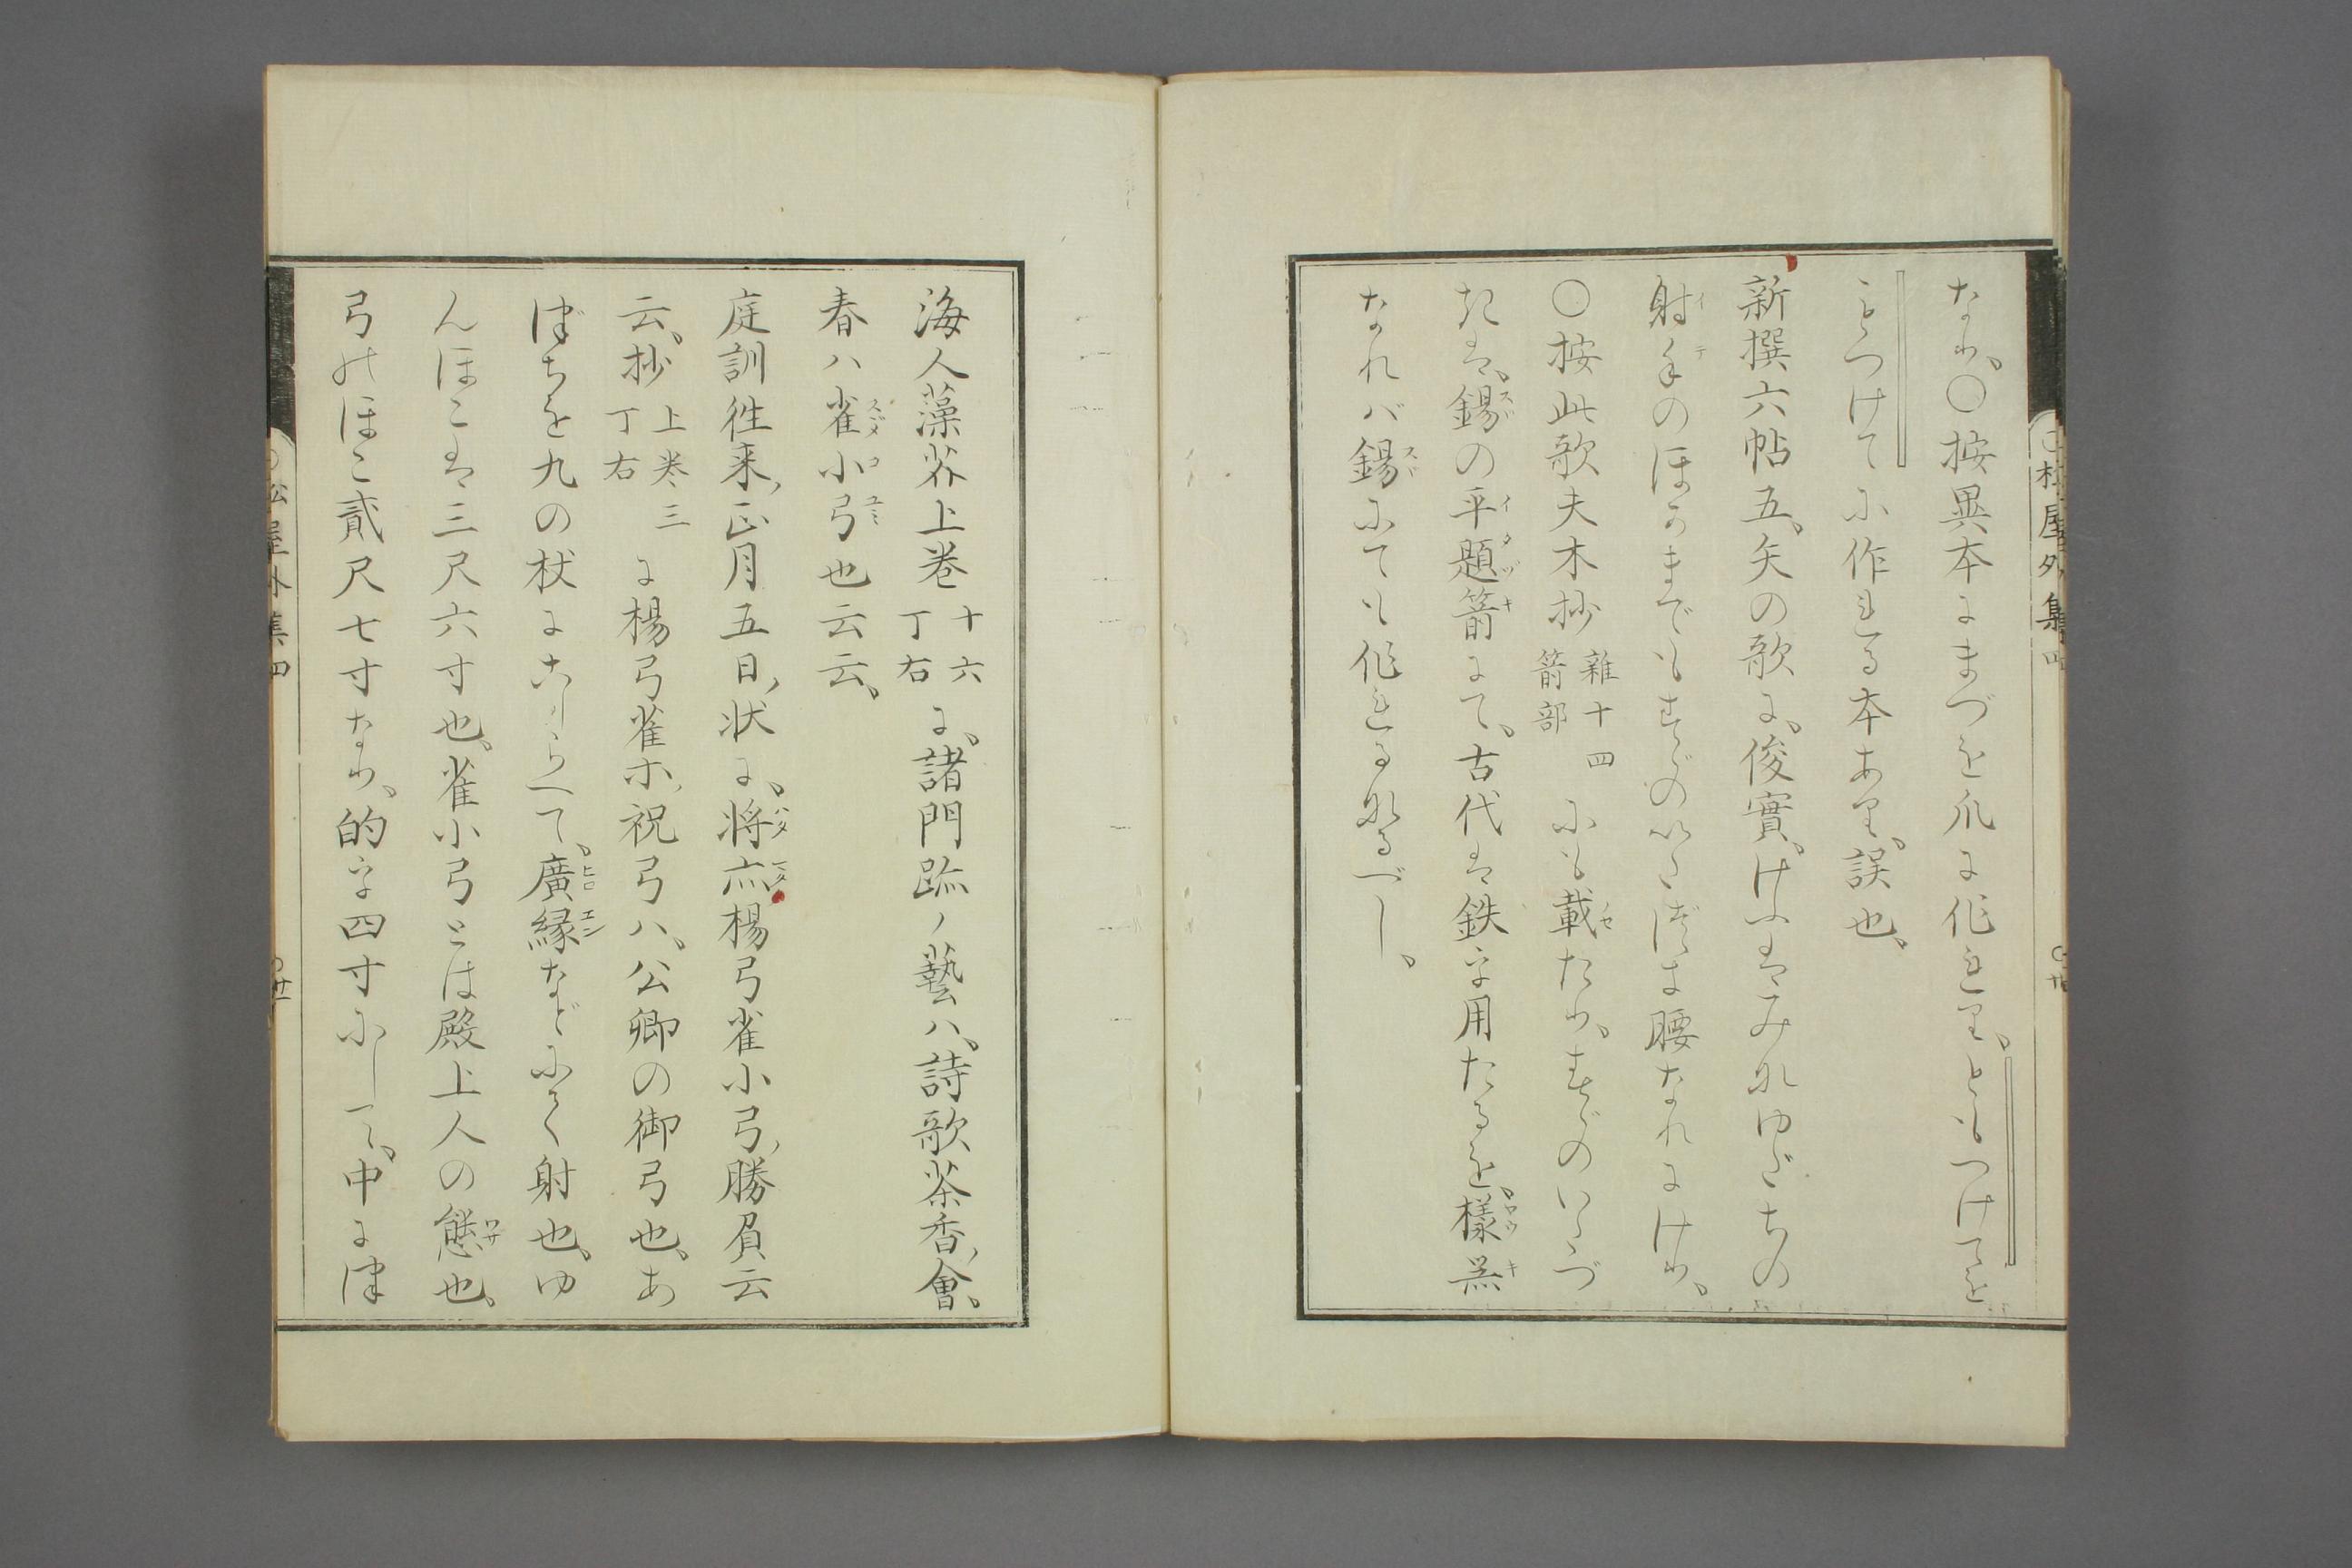 なり、〇按異本にまづを爪に作れり、ともつけてを
もつけてに作れる本あり、誤也、
新撰六帖五、矢の歌に、俊實、けふはみなゆづちの
射手のほかまでもすゞのいたづき腰なれにけり、
〇按此歌夫木抄雜十四箭部にも載たり、すゞのいたづ
きは、錫の平題箭にて、古代は鉄を用たるを、樣器
なれバ錫にても作れるなるべし、
海人藻芥上巻十六丁右に、諸門跡ノ藝ハ、詩歌茶香ノ會、
春ハ雀小弓也云云、
庭訓徃来、正月五日ノ状に、将亦楊弓雀小弓ノ勝負云
云、抄上巻三丁右に楊弓雀小、祝弓ハ、公卿の御弓也、あ
づちを九の杖にこしらへて、廣縁などにて射也、ゆ
んほこは三尺六寸也、雀小弓とは殿上人の態也、
弓のほこ貳尺七寸なり、的を四寸にして、中に津
松屋外集四